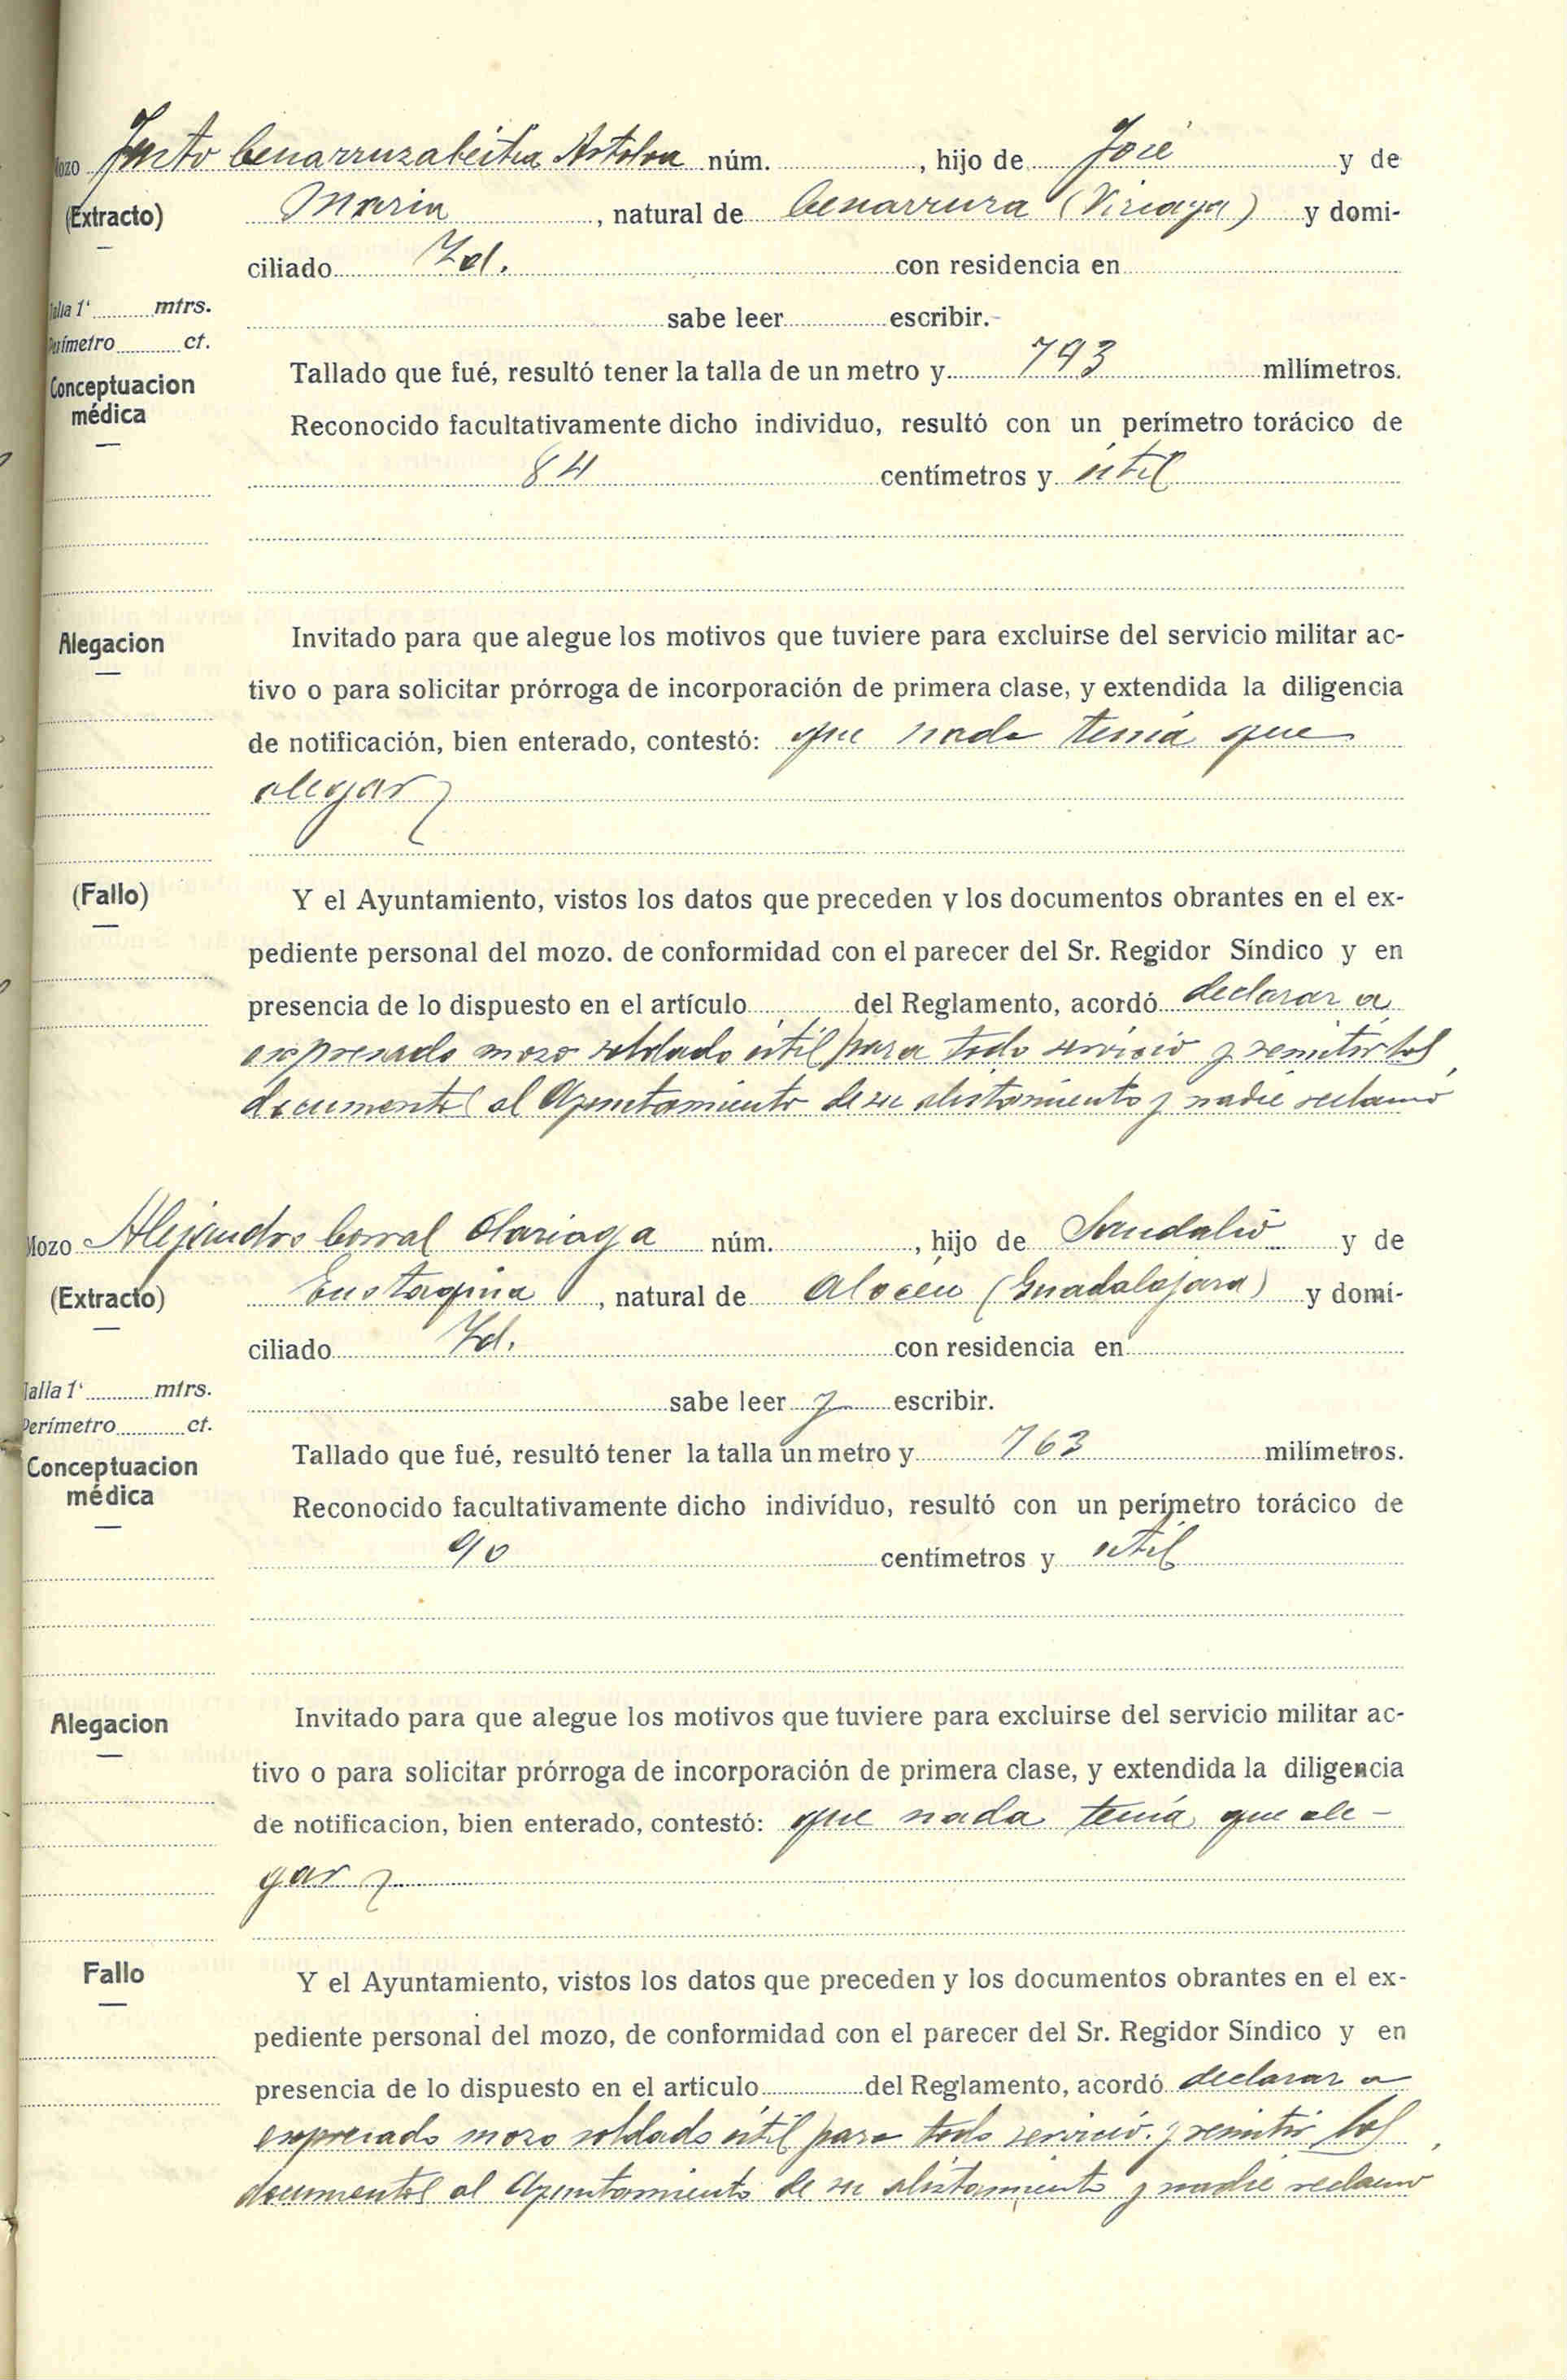 Mozo Justo Cenarruzabeitia Artoloa núm. , hijo de José y de
(Extracto) Maria , natural de Cenarruza (Vizcaya) y domi-
ciliado Id. con residencia en
Talla 1' mtrs. sabe leer escribir.-
Perímetro ct.
Conceptuacion médica
Tallado que fué, resultó tener la talla de un metro y 793 milímetros.
Reconocido facultativamente dicho individuo, resultó con un perímetro torácico de
84 centímetros y útil
Alegacion Invitado para que alegue los motivos que tuviere para excluirse del servicio militar ac-
tivo o para solicitar prórroga de incorporación de primera clase, y extendida la diligencia
de notificación, bien enterado, contestó: que nada tenía que
alegar
(Fallo) Y el Ayuntamiento, vistos los datos que preceden y los documentos obrantes en el ex-
pediente personal del mozo. de conformidad con el parecer del Sr. Regidor Síndico y en
presencia de lo dispuesto en el artículo del Reglamento, acordó declarar a
expresado mozo soldado útil para todo servicio y remitir los
documentos al Ayuntamiento de su alistamiento y nadie reclamó
Mozo Alejandro Corral Olariaga núm. , hijo de Sandalio y de
(Extracto) Eustaquia , natural de Alocén (Guadalajara) y domi-
ciliado Id. con residencia en
Talla 1' mtrs. sabe leer y escribir.
Perímetro ct.
Conceptuacion médica
Tallado que fué, resultó tener la talla un metro y 763 milímetros.
Reconocido facultativamente dicho indivíduo, resultó con un perímetro torácico de
90 centímetros y útil
Alegacion Invitado para que alegue los motivos que tuviere para excluirse del servicio militar ac-
tivo o para solicitar prórroga de incorporación de primera clase, y extendida la diligencia
de notificacion, bien enterado, contestó: que nada tenía que ale-
gar
Fallo Y el Ayuntamiento, vistos los datos que preceden y los documentos obrantes en el ex-
pediente personal del mozo, de conformidad con el parecer del Sr. Regidor Síndico y en
presencia de lo dispuesto en el artículo del Reglamento, acordó declarar a
expresado mozo soldado útil para todo servicio y remitir los
documentos al Ayuntamiento de su alistamiento y nadie reclamó